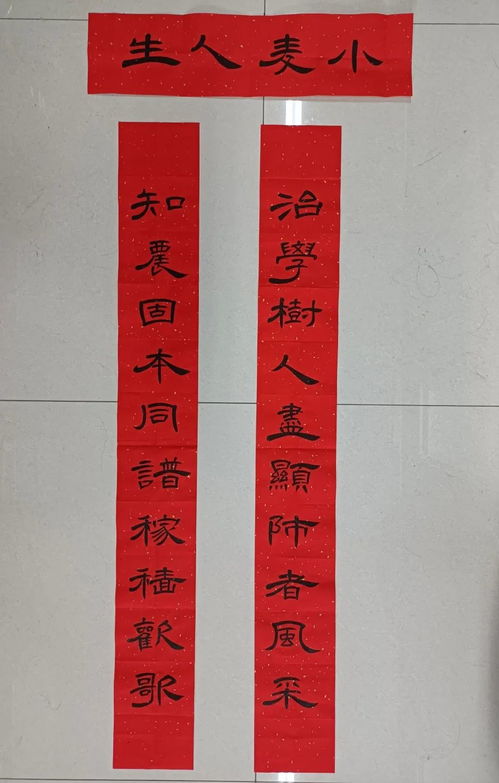 小麦人生
治學樹人盡顯師者風采
知農固本同譜稼穡歡歌